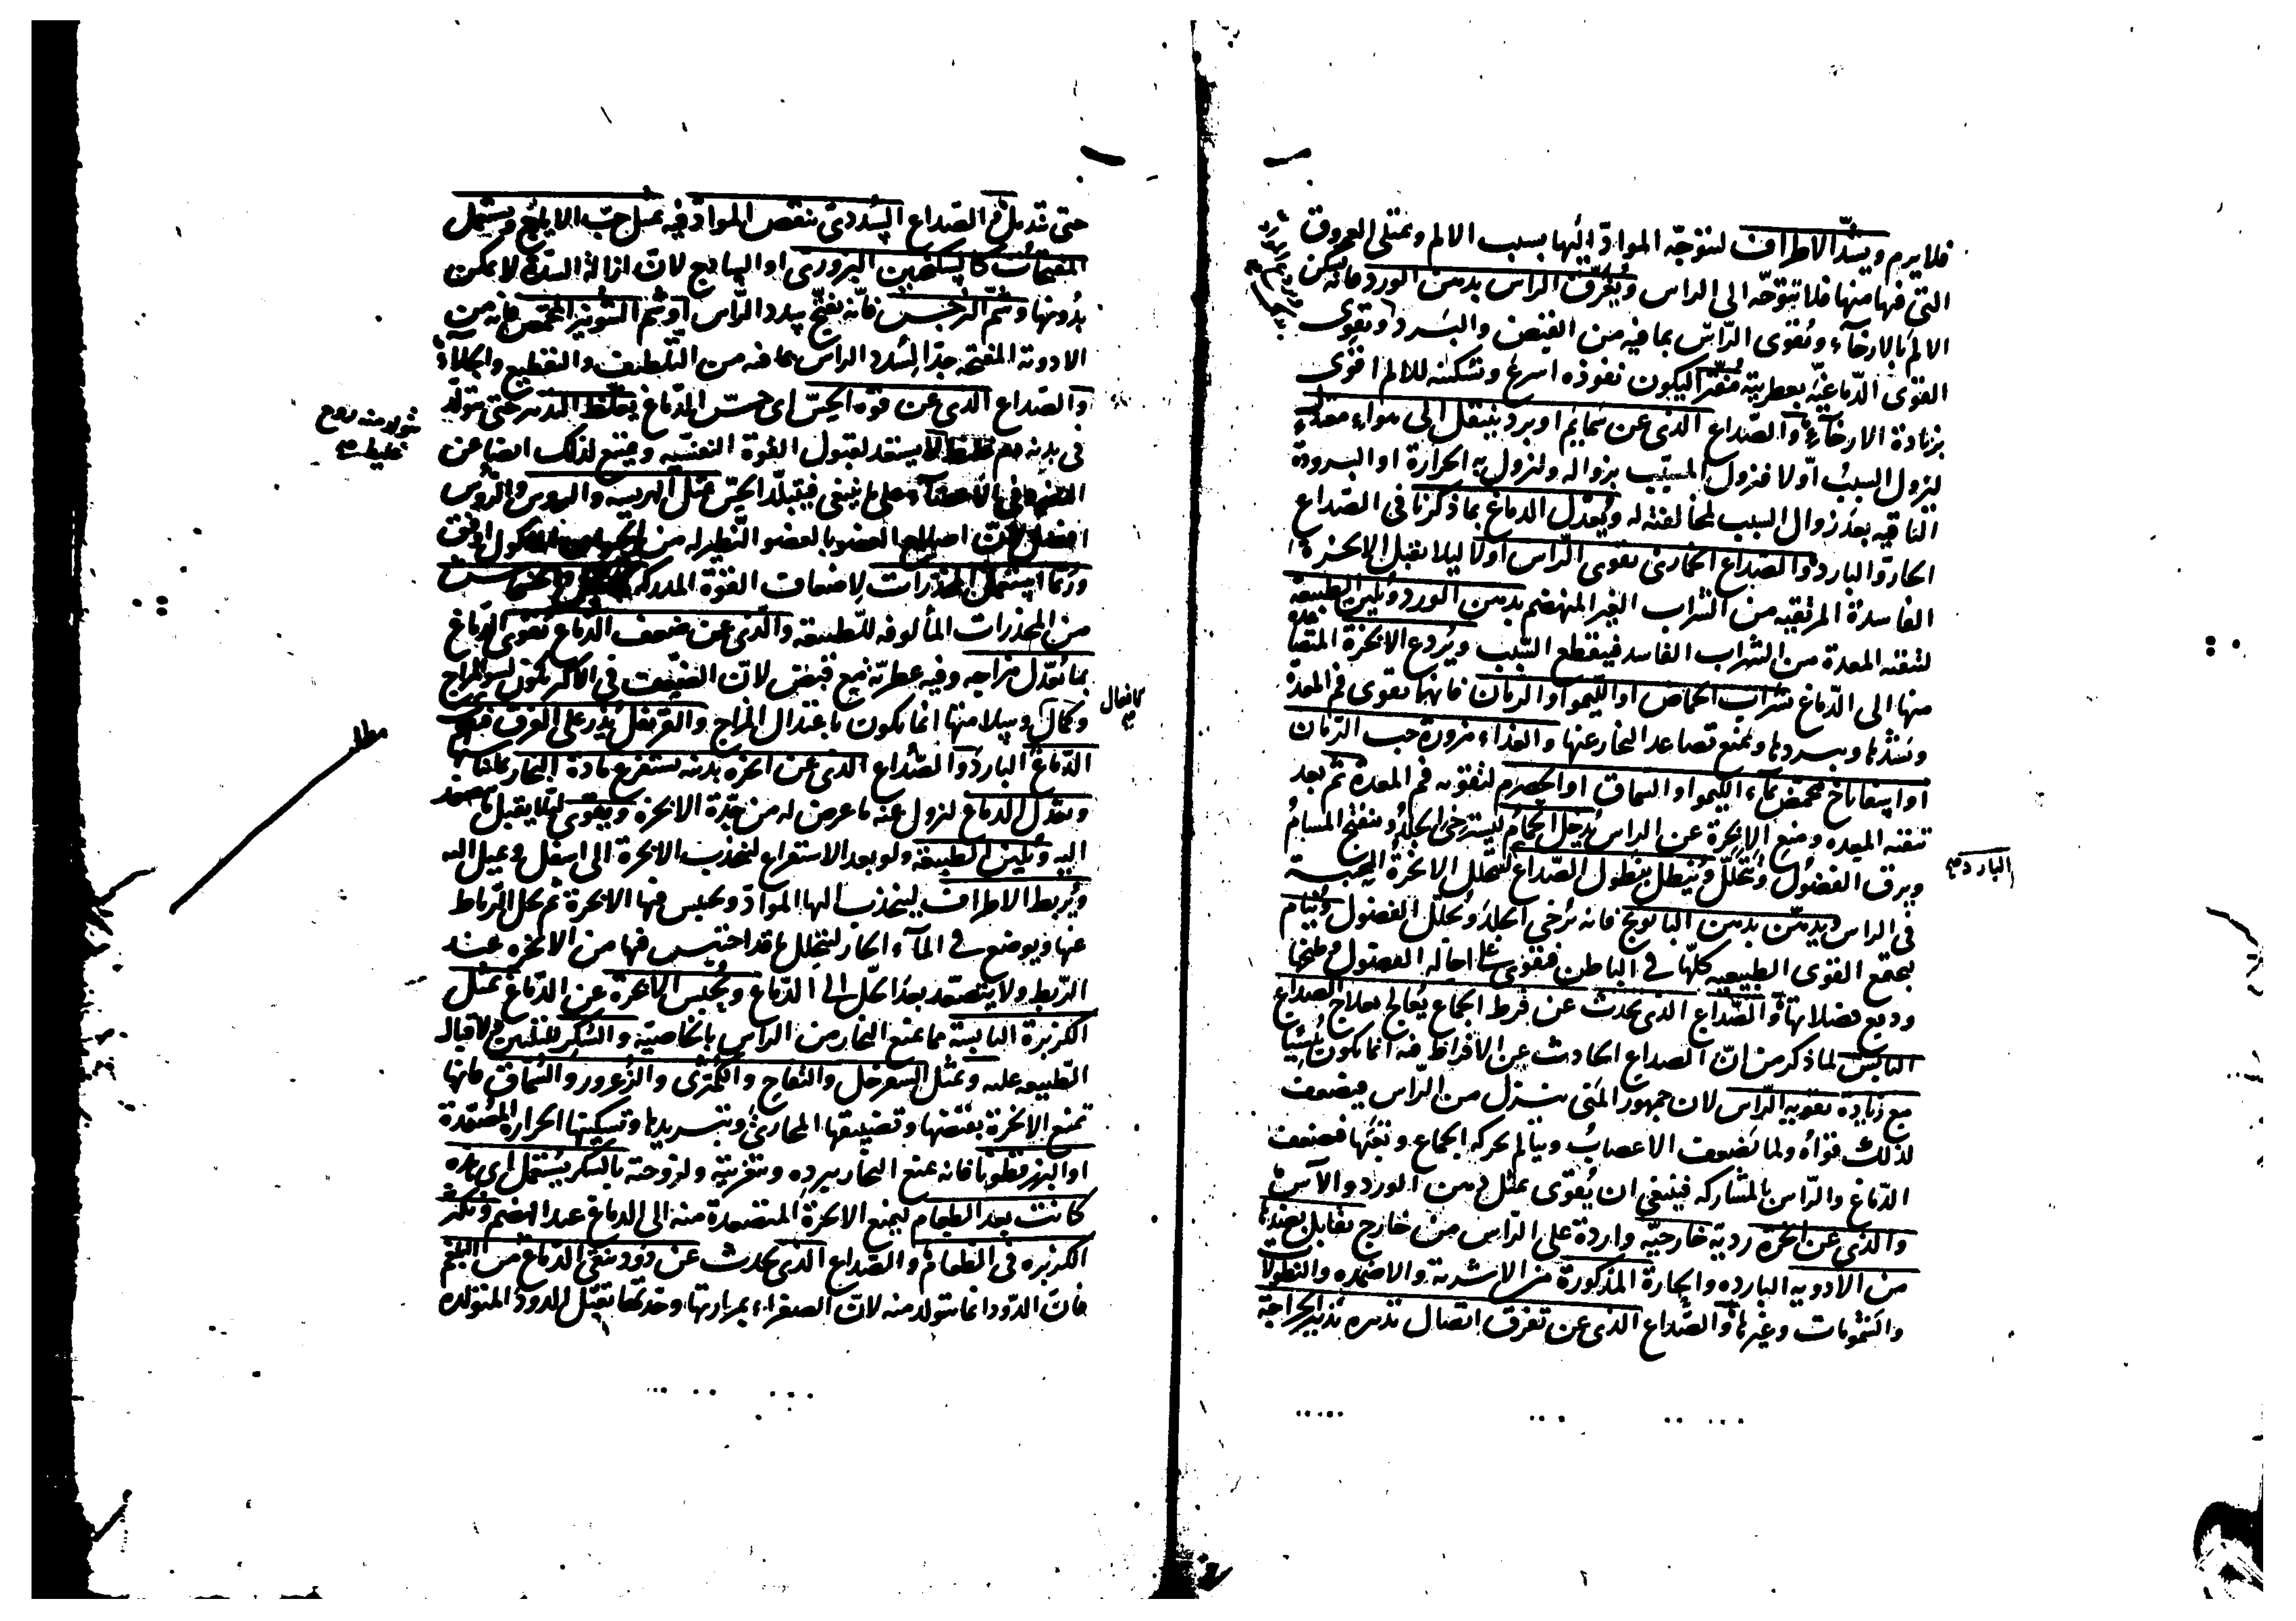 فلا يرم ويشدّ الاطراف لتتوجّه الموادّ اليها بسبب الالم وتمتلى العروق
التى فيها منها فلا تتوجّه الى الراس ويُعرّق الراس بدهن الورد فانه يسكن
الالم بالارخآء ويُقوى الرّاس بما فيه من القبض والبرد ويقوى
القوى الدّماغيّة بعطريته مفترا ليكون نفوذه اسرع وتسكينه للالم اقوى
بزيادة الارخآء والصّداع الذى عن سمايم او برد ينتقل الى هواء معتدل
ليزول السبب اوّلا فيزول المسبّب بزواله ولتزول به الحرارة او البرودة
الباقيه بعد زوال السبب لمخالفته له ويُعدّل الدماغ بما ذكرنا فى الصداع
الحار والبارد والصداع الخمارى يقوى الراس اولا ليلا يقبل الابخرة
الفاسدة المرتقيه من الشراب الغير المنهضم بدهن الورد ويلين الطبيعه
لتنقيه المعدة من الشراب الفاسد فينقطع السّبب ويُردع الابخرة المتصاعده
منها الى الدّماغ بشراب الحماض او الليمو او الرمان فانها تقوى فم المعدة
وتشدّها وتبردها وتمنع تصاعد البخار عنها والغذاء مزورة حب الرمان
او اسفاناخ محمض بمآء الليمو او السماق او الحصرم لتقويه فم المعدة ثم بعد
تنقيه المعده ومنع الابخرة عن الراس يُدخل الحمّام ليسترخى الجلد وتنفتح المسام
ويرق الفضول وتتحلّل ويُنطل بنطول الصّداع البارد لتتحلل الابخرة المحتبسة
فى الراس ويدهن بدهن البابونج فانه يُرخى الجلد ويُحلّل الفضول ويُنام
ليجتمع القوى الطبيعيه كلّها فى الباطن فتقوى على احالة الفضول وطبخها
ودفع فضلاتها والصّداع الذى يحدث عن فرط الجماع يُعالج بعلاج الصداع
اليابس لما ذكر من انّ الصداع الحادث عن الافراط فيه انما يكون يُبسيّا
مع زيادة تقوية الراس لان جمهور المَنى ينزل من الرّاس فيضعف
لذلك قواه ولما تضعف الاعصاب ويتالم بحركة الجماع وتعبها فيضعف
الدّماغ والرّاس بالمشاركه فينبغى ان يُقوّى بمثل دهن الورد والآس
والذى عن ابخرة رديّة خارجيّة واردة على الرّاس من خارج يقابل بضدّها
من الادويه البارده والحارة المذكورة من الاشربة والاضمده والنطولات
والشمومات وغيرها والصّداع الذى عن تفرق اتصال تدبيره تدبير الجراحة
حتى تندمل والصّداع السُّددى ينقص المواد فيه بمثل حبّ الايارج ويستعمل
المفتحات كالسكنجبين البزورى او الساذج لان ازالة السدّة لا يمكن
بدونها وشمّ النرجس فانّه يفتّح سدد الرّاس او شم الشونيز المحمّص فانه من
الادوية المفتحة جدّا لسُدد الراس بما فيه من التلطيف والتقطيع والجلاء
والصّداع الذى عن قوة الحِسّ اى حسّ الدّماغ يغلّظ التدبير حتى يتولّد
فى بدنه دم غليظ لا يستعد لقبول القوة النفسيّه ويمنع لذلك ايضا عن
النفوذ فى الاعضاء على ما ينبغى فيتبلّد الحسّ بمثل الهريسه والروس والروس
افضل لانّ اصلاح العضو بالعضو النظير له من الحيوان الماكول اوفق
وربّما استعمل المخدّرات لاضعاف القوّة المدركه
من المخدرات المألوفه للطّبيعه والذى عن ضعف الدماغ يُقوى الدّماغ
بما يُعدّل مزاجه وفيه عطريّة مع قبض لانّ الضّعف فى الاكثر يكون لسوء المزاج
وكمال الافعال وسلامتها انما يكون باعتدال المزاج والقرنفل يُذرّ على الفرق
الدّماغ البارد والصّداع الذى عن ابخرة بدنه يستفرغ مادة البخار
ويعدّل الدماغ لتزول عنه ما عرض له من حِدّة الابخرة ويقوى لئلا يقبل ما يتصعّد
اليه ويُلين الطبيعة ولو بعد الاستفراغ لتنجذب الابخرة الى اسفل وتميل اليه
ويُربط الاطراف لينجذب اليها الموادّ وتحتبس فيها الابخرة ثم تحلّ الرّباط
عنها ويوضع فى المآء الحار ليتحلل ما قد احتبس فيها من الابخره عند
الرّبط ولا يتصعّد بعد الحل الى الدّماغ ويُحبس الابخرة عن الدماغ بمثل
الكزبرة اليابسة مما يمنع البخار من الراس بالخاصيّة والسّكر للتليين ولاقبال
الطّبيعه عليه وبمثل السفرجل والتفاح والكمّثرى والزعرور والسّماق فانها
تمنع الابخرة بقبضها وتضييقها المجارى وتبريدها وتسكينها الحرارة المُصعّدة
او البزرقطونا فانه يمنع البخار ببرده وتغريته ولزوجته بالسكر يُستعمل اى هذه
كانت بعد الطعام ليمنع الابخرة المتصعدة منه الى الدماغ عند الهضم وتكثر
الكزبره فى الطعام والصّداع الذى يحدث عن دود ينقى الدّماغ من البلغم
فانّ الدّود انما يتولد منه لانّ الصفراء بمرارتها وحدتها تقتل الدود المتولده
البارد صح
يتولد منه روح غليظ صح
كافعال صح
مطلب